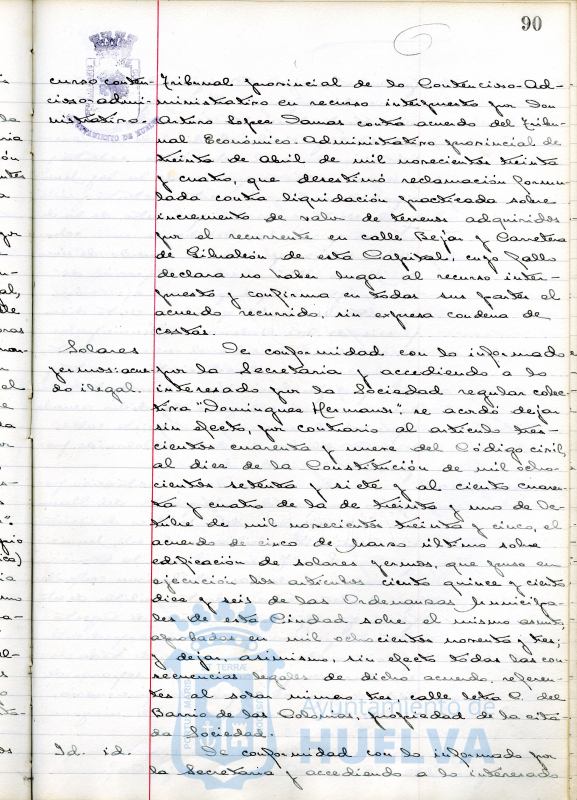 90
curso conten-
cioso-admi-
nistrativo.
Tribunal provincial de lo Contencioso-Ad-
ministrativo en recurso interpuesto por Don
Arturo López Damas contra acuerdo del Tribu-
nal Económico-Administrativo provincial de
treinta de Abril de mil novecientos treinta
y cuatro, que desestimó reclamación formu-
lada contra liquidación practicada sobre
incremento de valor de terrenos adquiridos
por el recurrente en calle Bejar y Carretera
de Gibraleón de esta Capital, cuyo fallo
declara no haber lugar al recurso inter-
puesto y confirma en todas sus partes el
acuerdo recurrido, sin expresa condena de
costas.
Solares
yermos: acuer-
do ilegal.
De conformidad con lo informado
por la Secretaria y accediendo a lo
interesado por la Sociedad regular colec-
tiva "Domínguez Hermanos" se acordó dejar
sin efecto, por contrario al artículo tres-
cientos cuarenta y nueve del Código civil,
al diez de la Constitución de mil ocho-
cientos setenta y siete y al ciento cuaren-
ta y cuatro de la de treinta y uno de Oc-
tubre de mil novecientos treinta y cinco, el
acuerdo de cinco de Marzo último sobre
edificación de solares yermos, que puso en
ejecución los artículos ciento quince y ciento
diez y seis de las Ordenanzas Municipa-
les de esta Ciudad sobre el mismo asunto,
aprobadas en mil ochocientos noventa y tres;
y dejar asimismo, sin efecto todas las con
secuencias legales de dicho acuerdo, referen-
tes al solar número tres, calle letra C. del
Barrio de las Colonias, propiedad de la cita-
da Sociedad.
Id. id.
De conformidad con lo informado por
la Secretaria y accediendo a lo interesado
Ayuntamiento de
HUELVA